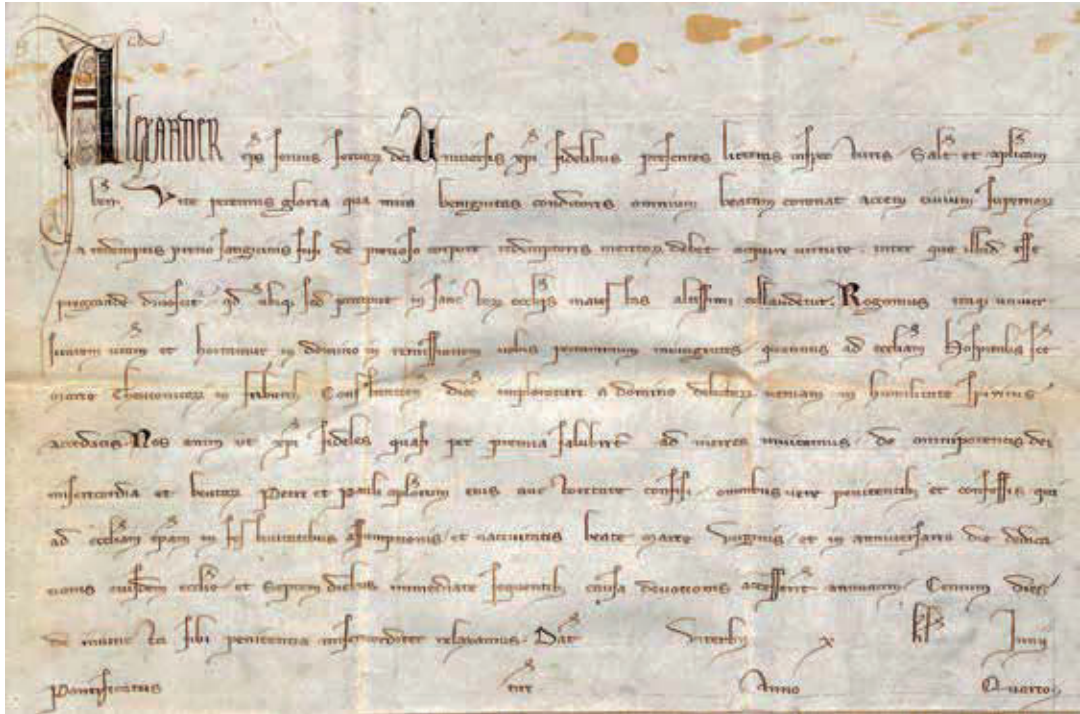 Alexander eps servus servor dei Universis xpi fidelibus presentes litteras inspec turis Salt et aplicam
ben. Vite perennis gloria qua mira benignitas conditoris omnium beatam coronat aciem civium supernor
a redemptis pretio sanguinis fusi de pretioso corpore redemptoris meritor debet acquiri virtute. inter que illud esse
pregrande dinoscit qd ubiq sed precipue in sanc tor ecclijs maies tas altissimi collaudetur. Rogamus itaq univer
sitatem vram et hortamur in domino in remissionem vobis peccaminum iniungentes quatinus ad eccliam Hospitalis sce
marie Theutonicor in dioc imploraturi a domino delictor veniam in humilitate spiritus
accedatis. Nos enim ut xpi fideles quasi per premia salubrit ad merita invitemus de omnipotentis dei
misericordia et beator Petri et Pauli aplorum eius auc toritate confisi omnibus vere penitentib et confessis qui
ad eccliam ipam in fes tivitatibus assumptionis et nativitatis beate marie virginis et in anniversario die dedica
tionis eiusdem ecclie et septem diebus immediate sequentib causa devotionis accesserit annuatim Centum dies
de iniunc ta sibi penitentia misericorditer relaxamus. Dat Viterbij x kls Junij
Pontificatus nri Anno Quarto